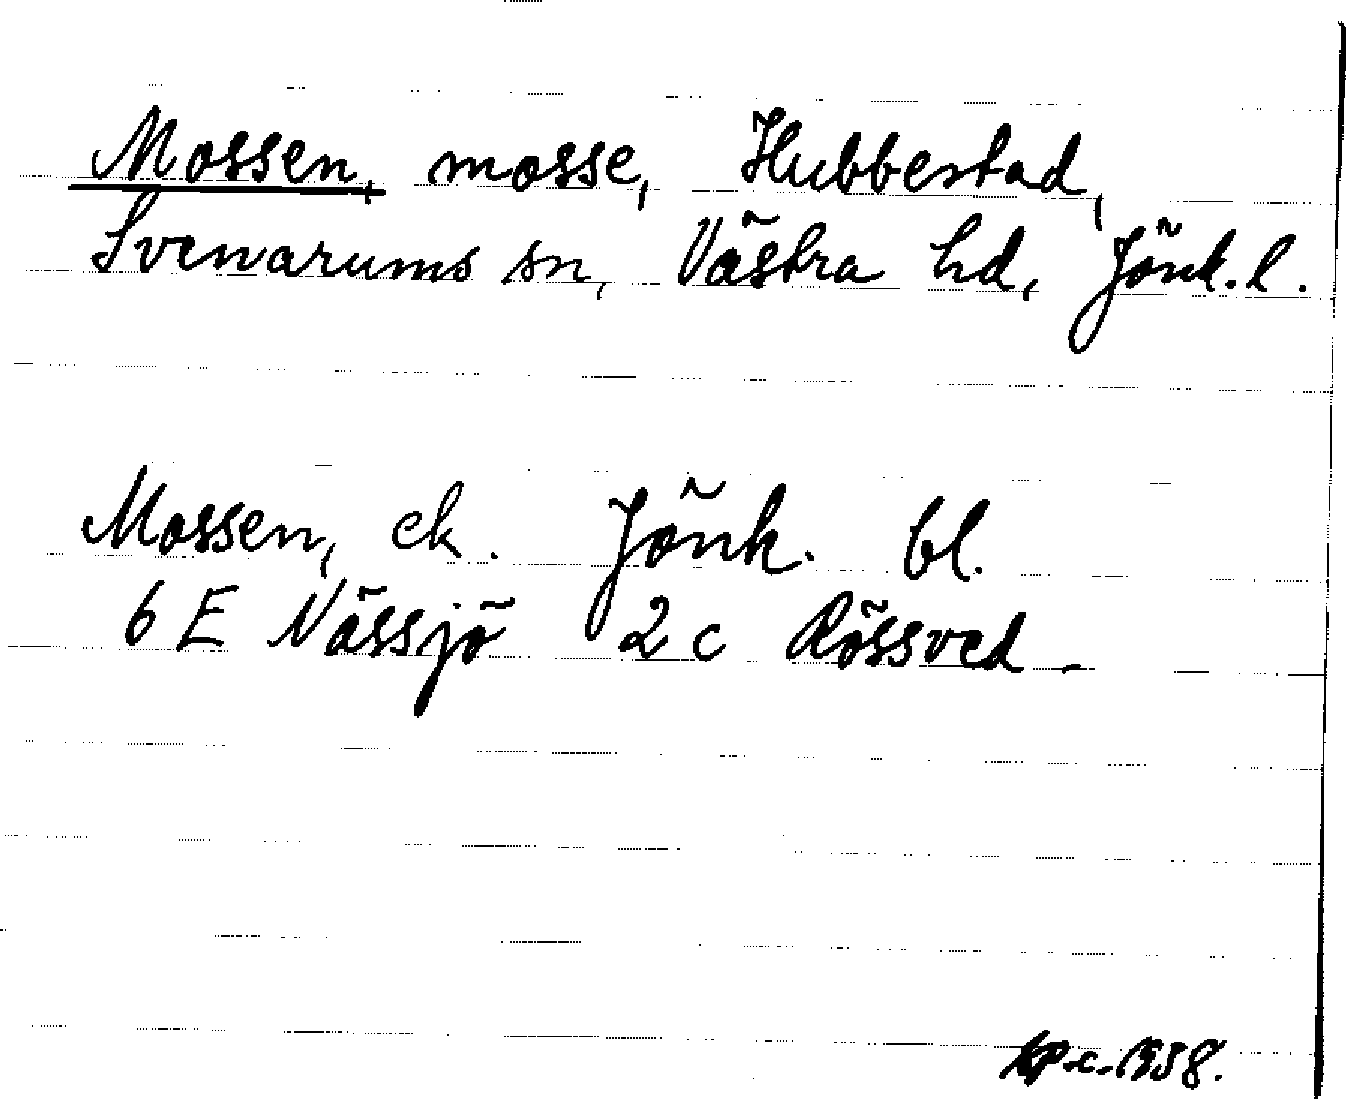 Mossen, mosse, Hubbestad,
Svenarums sn, Västra hd, Jönk. l.
Mossen, ek. Jönk. bl.
6 E Nässjö 2 c Rössved
1958.